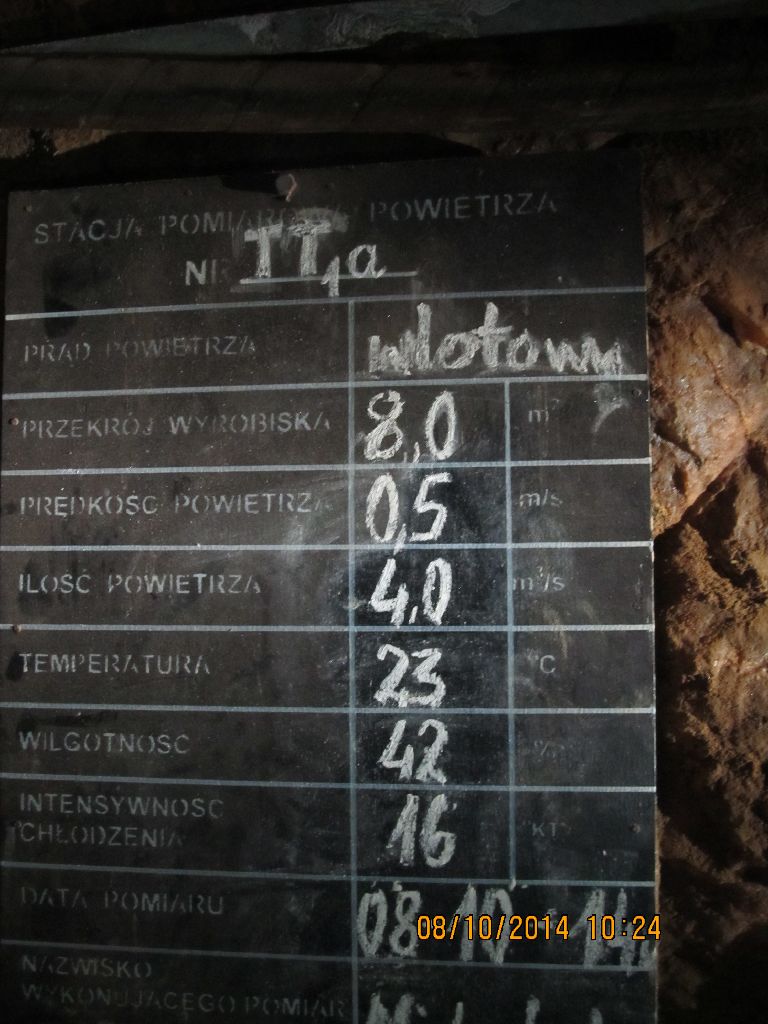 STACJA POMIAROWA POWIETRZA
NR TT1a
PRĄD POWIETRZA wlotowy
PRZEKRÓJ WYROBISKA 8,0 m²
PRĘDKOŚĆ POWIETRZA 0,5 m/s
ILOŚĆ POWIETRZA 4,0 m³/s
TEMPERATURA 23 °C
WILGOTNOŚĆ 42 %
INTENSYWNOŚĆ
CHŁODZENIA 16 KT
DATA POMIARU 08 10 14
08/10/2014 10:24
NAZWISKO
WYKONUJĄCEGO POMIAR